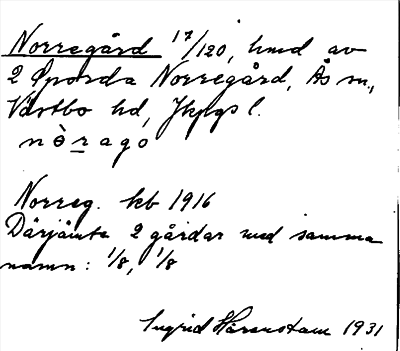 Norregård 17/120, hmd av
2 Öporda Norregård, Ås sn.,
Västbo hd, Jkpgs l.
nòrago
Norreg. kb 1916
Därjämte 2 gårdar med samma
namn: 1/8, 1/8
Ingrid Härenstam 1931